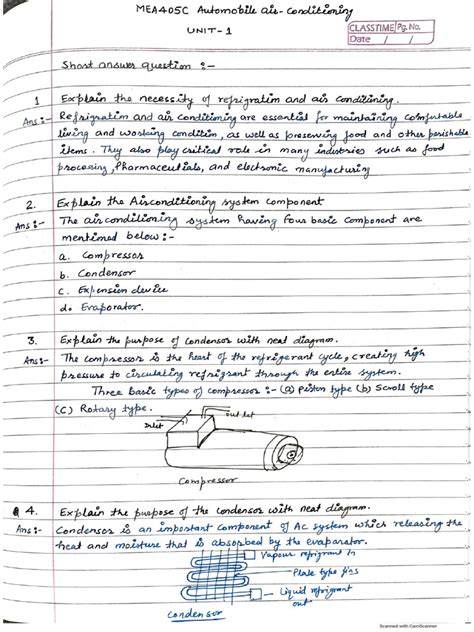 MEA405C Automobile air-Conditioning
UNIT-1
CLASSTIME Pg. No.
Date / /
Short answer question :-
1 Explain the necessity of refrigration and air conditining.
Ans:- Refrigration and air conditioning are essential for maintaining comfortable
living and working condition, as well as preserving food and other perishable
items. They also play critical role in many industries such as food
processing, Pharmaceuticals, and electronic manufacturing
2. Explain the Airconditioning system component
Ans:- The airconditioning system having four basic component are
mentioned below:-
a. Compressor
b. Condensor
c. Expension device
d. Evaporator.
3. Explain the purpose of Condensor with neat diagram.
Ans:- The compressor is the heart of the refrigerant cycle, creating high
pressure to circulating refrigrant through the entire system.
Three basic types of compressor :- (a) Piston type (b) Scroll type
(C) Rotary type.
Inlet
out let
Compressor
Q 4. Explain the purpose of the condensor with neat diagram.
Ans:- Condensor is an important component of AC system which releasing the
heat and moisture that is absorbed by the evaparator.
Vapour refrigrant In
Plate type fins
Liquid refrigrant
out
Condensor
Scanned with CamScanner